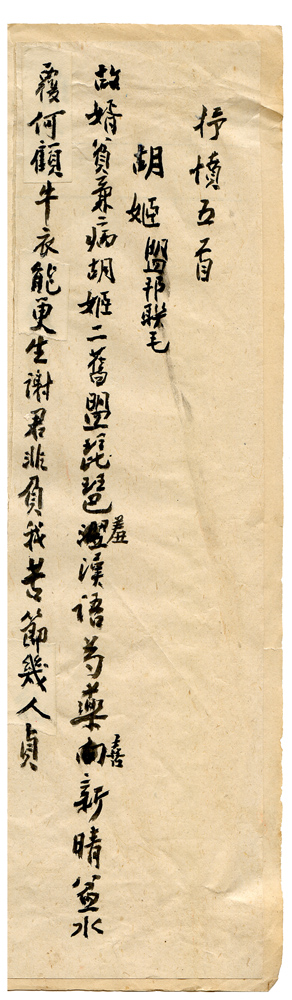 抒憤五首
胡姬 盟邦联毛
故婿貧兼病胡姬二舊盟琵琶羞漢語芍藥喜新晴盆水
覆何顧牛衣能更生謝君非負我苦節幾人貞